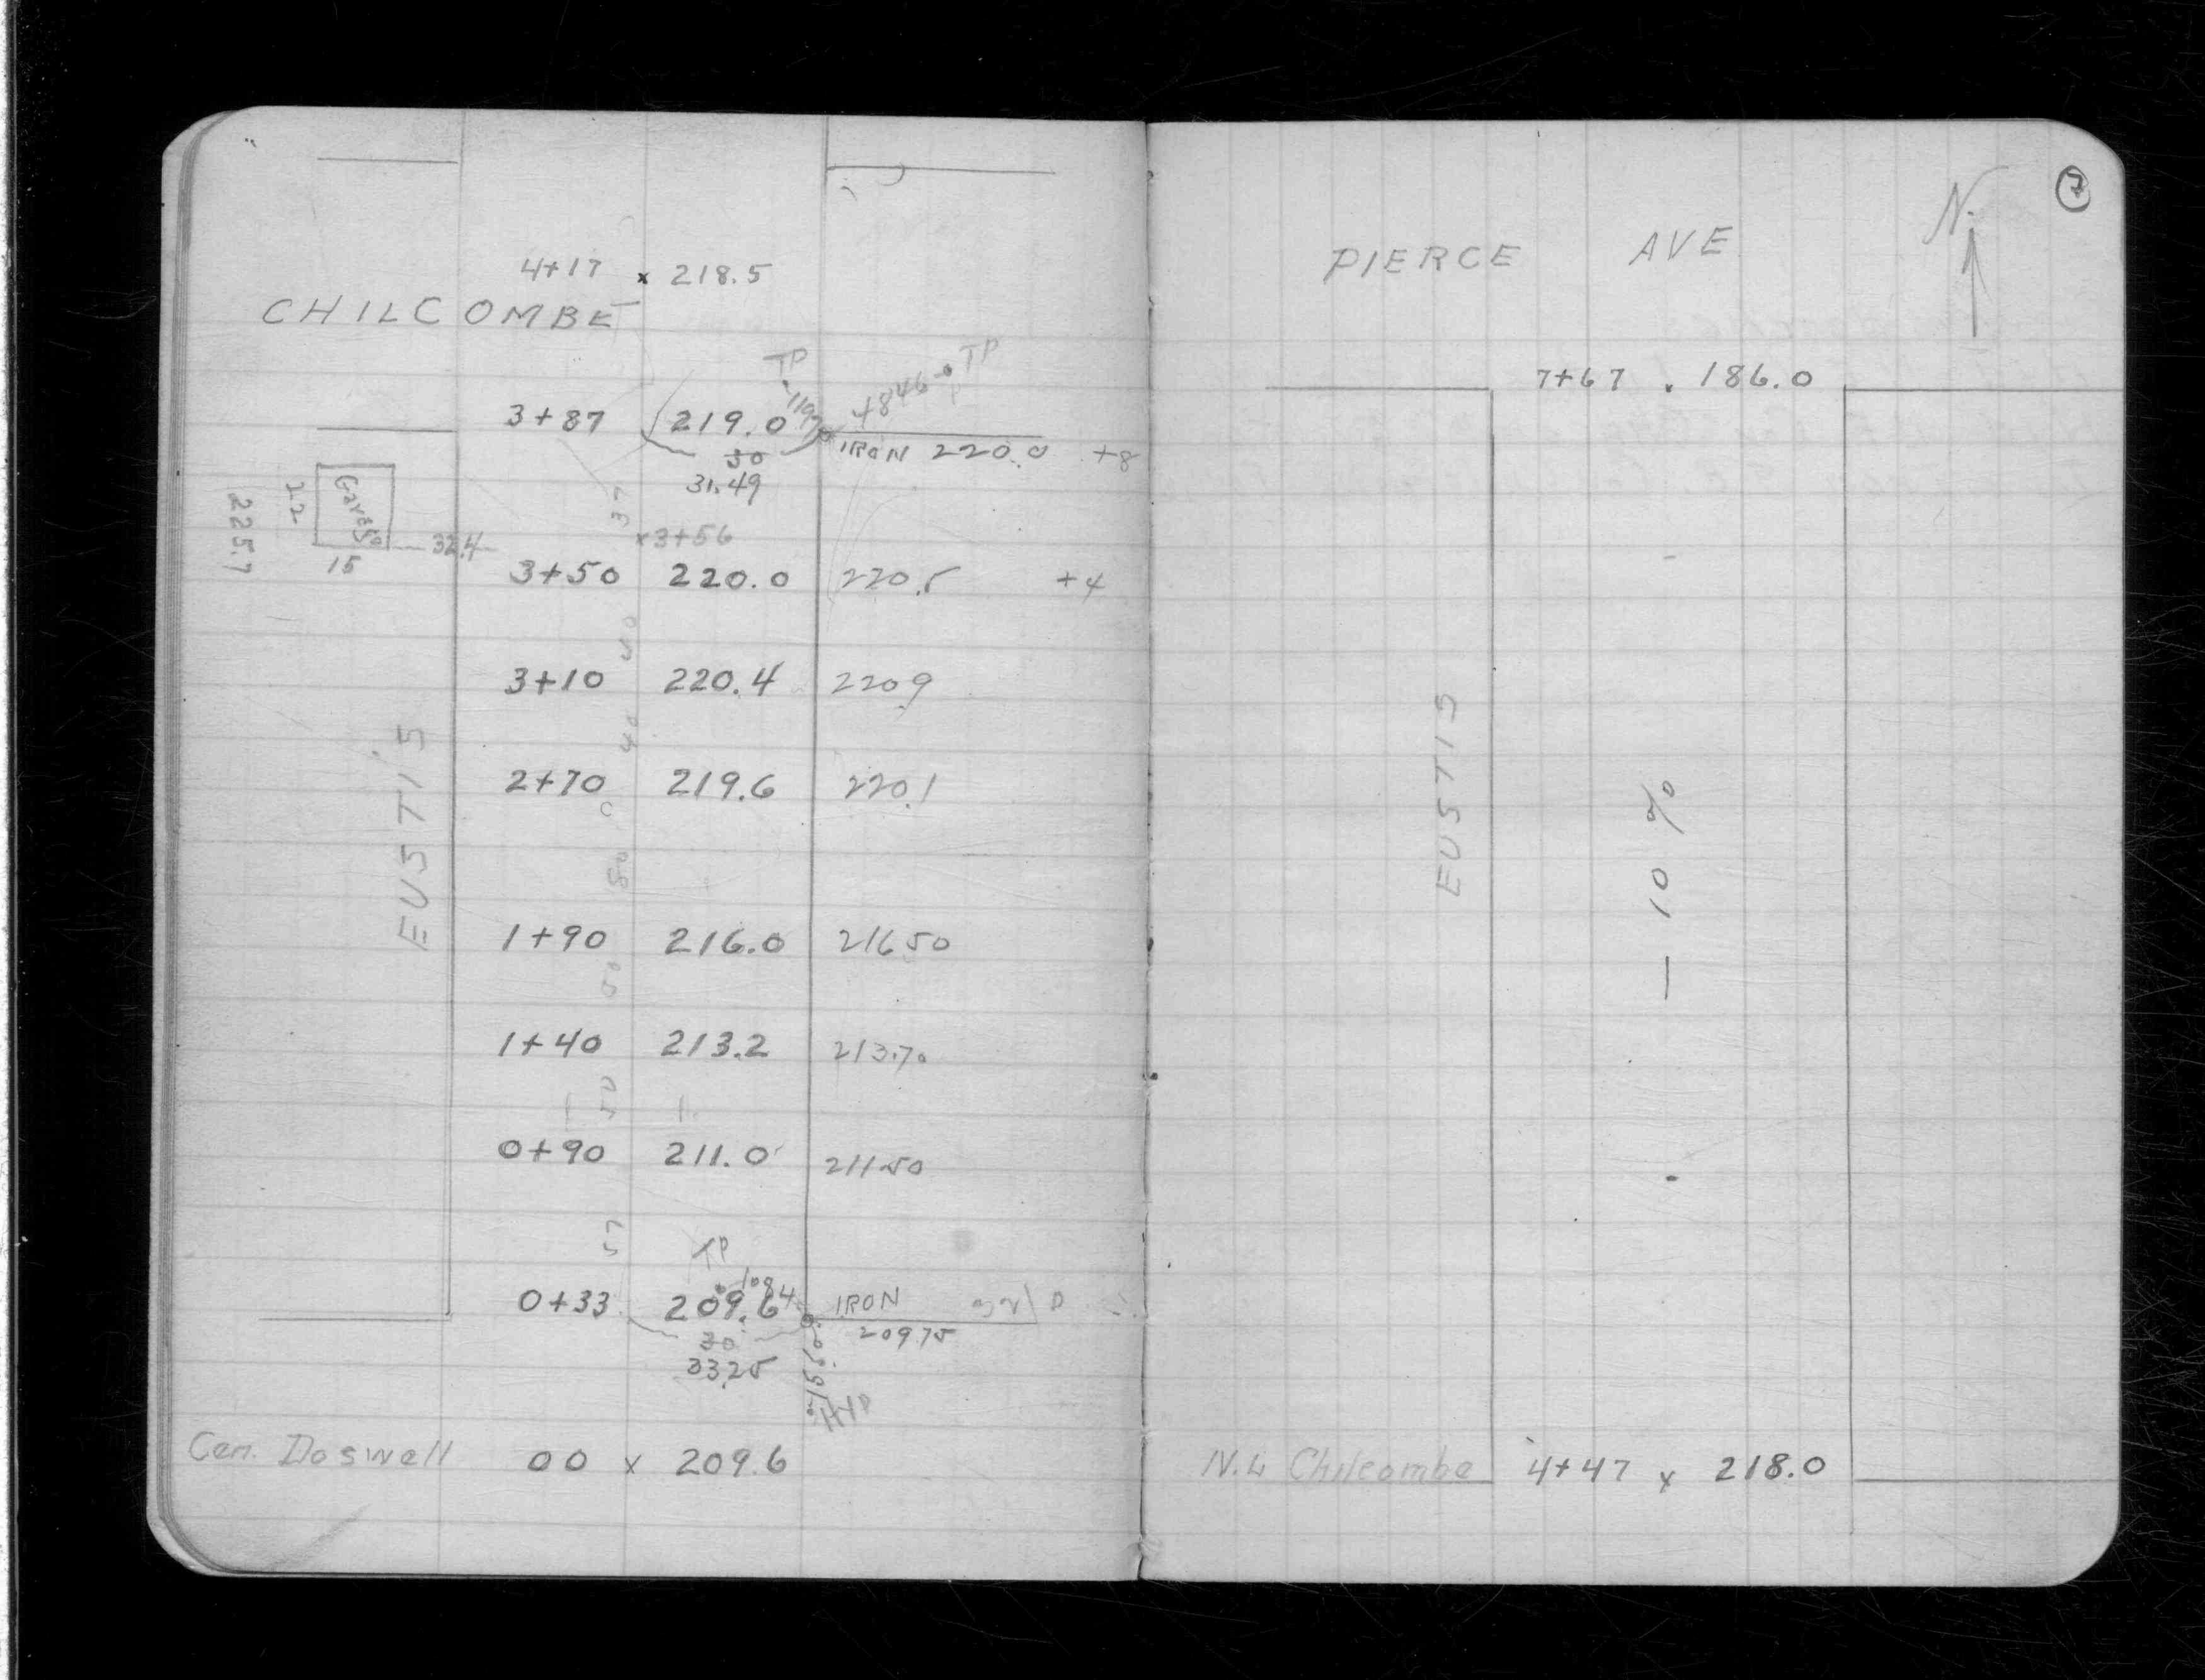 4+17 x 218.5
CHILCOMBE
TP
TP
48460
3+87 219.0
IRON 220.0 +8
30
31.49
Garage
22
225.7
15
32.4
37
x3+56
3+50 220.0 220.5 +4
40
3+10 220.4 220.9
40
2+70 219.6 220.1
EUSTIS
80
1+90 216.0 216.50
50
1+40 213.2 213.70
50
0+90 211.0 211.50
57
TP
1084
0+33 209.6 IRON
209.75
30
33.25
HYD
Cen. Doswell 00 x 209.6
7
N.
PIERCE AVE
7+67 . 186.0
EUSTIS
- 10 %
N.L. Chilcombe 4+47 x 218.0